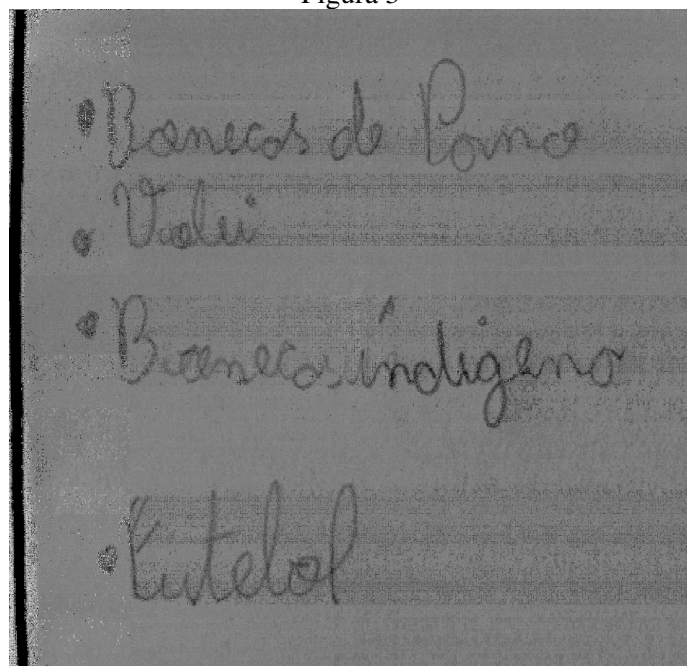 Figura 3
• Bonecas de Pano
• Volei
• Bonecas indígena
• Futebol